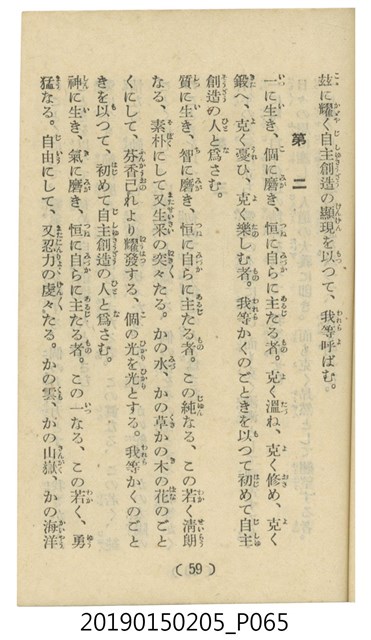 玆に耀く自主創造の顯現を以つて、我等呼ばむ。
第二
一に生き、個に磨き、恒に自らに主たる者。克く溫ね、克く修め、克く
鍛へ、克く憂ひ、克く樂しむ者。我等かくのごときを以つて初めて自主
創造の人と爲さむ。
質に生き、智に磨き、恒に自らに主たる者。この純なる、この若く淸朗
なる、素朴にして又生采の奕々たる。かの水、かの草かの木の花のごと
くにして、芬香己れより耀發する、個の光を光とする。我等かくのごと
きを以つて、初めて自主創造の人と爲さむ。
神に生き、氣に磨き、恒に自らに主たる者。この一なる、この若く、勇
猛なる。自由にして、又忍力の虔々たる。かの雲、かの山嶽、かの海洋
(59)
20190150205_P065